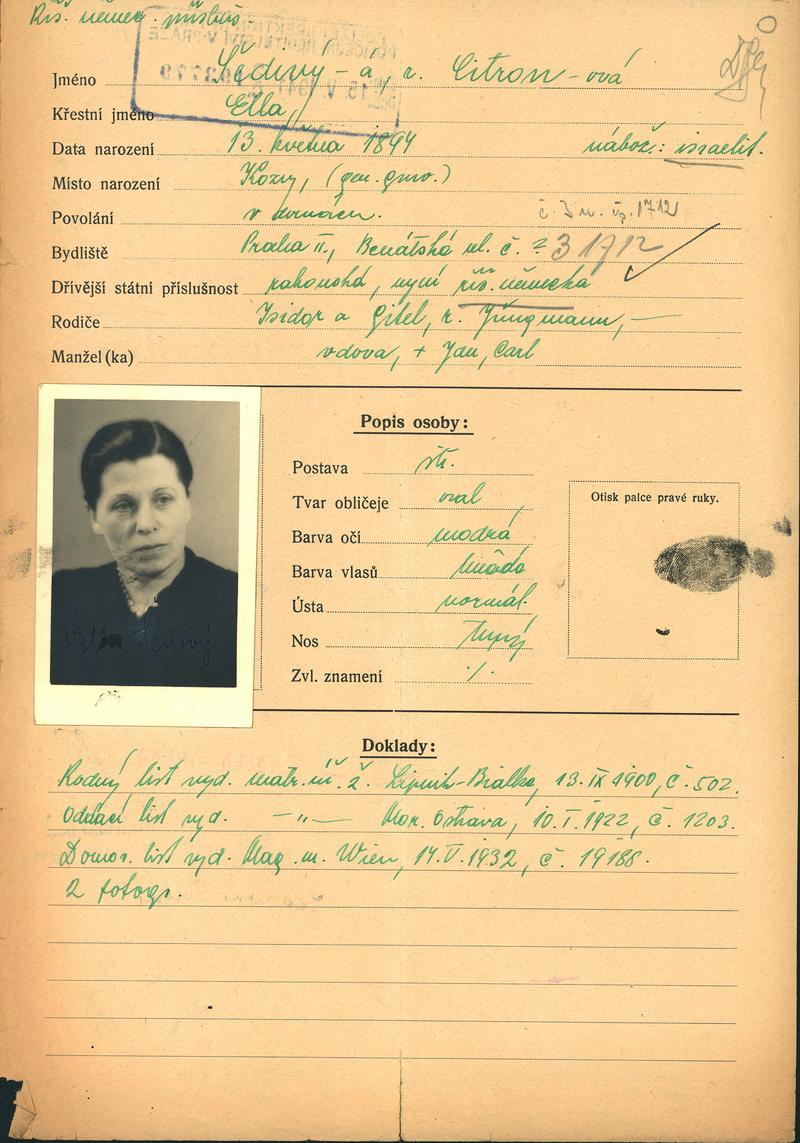 Řís. němec. přísluš.
Jméno Šedivý-á, r. Citron-ová
Křestní jméno Ella,
Data narození 13. května 1894 nábož.: israelit.
Místo narození Kozy, (gen. guv.)
Povolání v domácn. 1712
Bydliště Praha II., Benátská ul. č. 2 3 1712
Dřívější státní příslušnost rakouská, nyní říš. německá
Rodiče Isidor a Gitel, r. Jüngmann, —
Manžel (ka) vdova, + Jan, Carl
Popis osoby:
Postava stř.
Tvar obličeje oval
Otisk palce pravé ruky.
Barva očí modrá
Barva vlasů hnědá
Ústa normál.
Nos tupý
Zvl. znamení ./.
Doklady:
Rodný list vyd. matr. úř. ž. Lipnik-Bialka, 13. IX 1900, č. 502.
Oddací list vyd. —„— Mor. Ostrava, 10. I. 1922, č. 1203.
Domov. list vyd. Mag. m. Wien, 14. V. 1932, č. 19188.
2 fotogr.